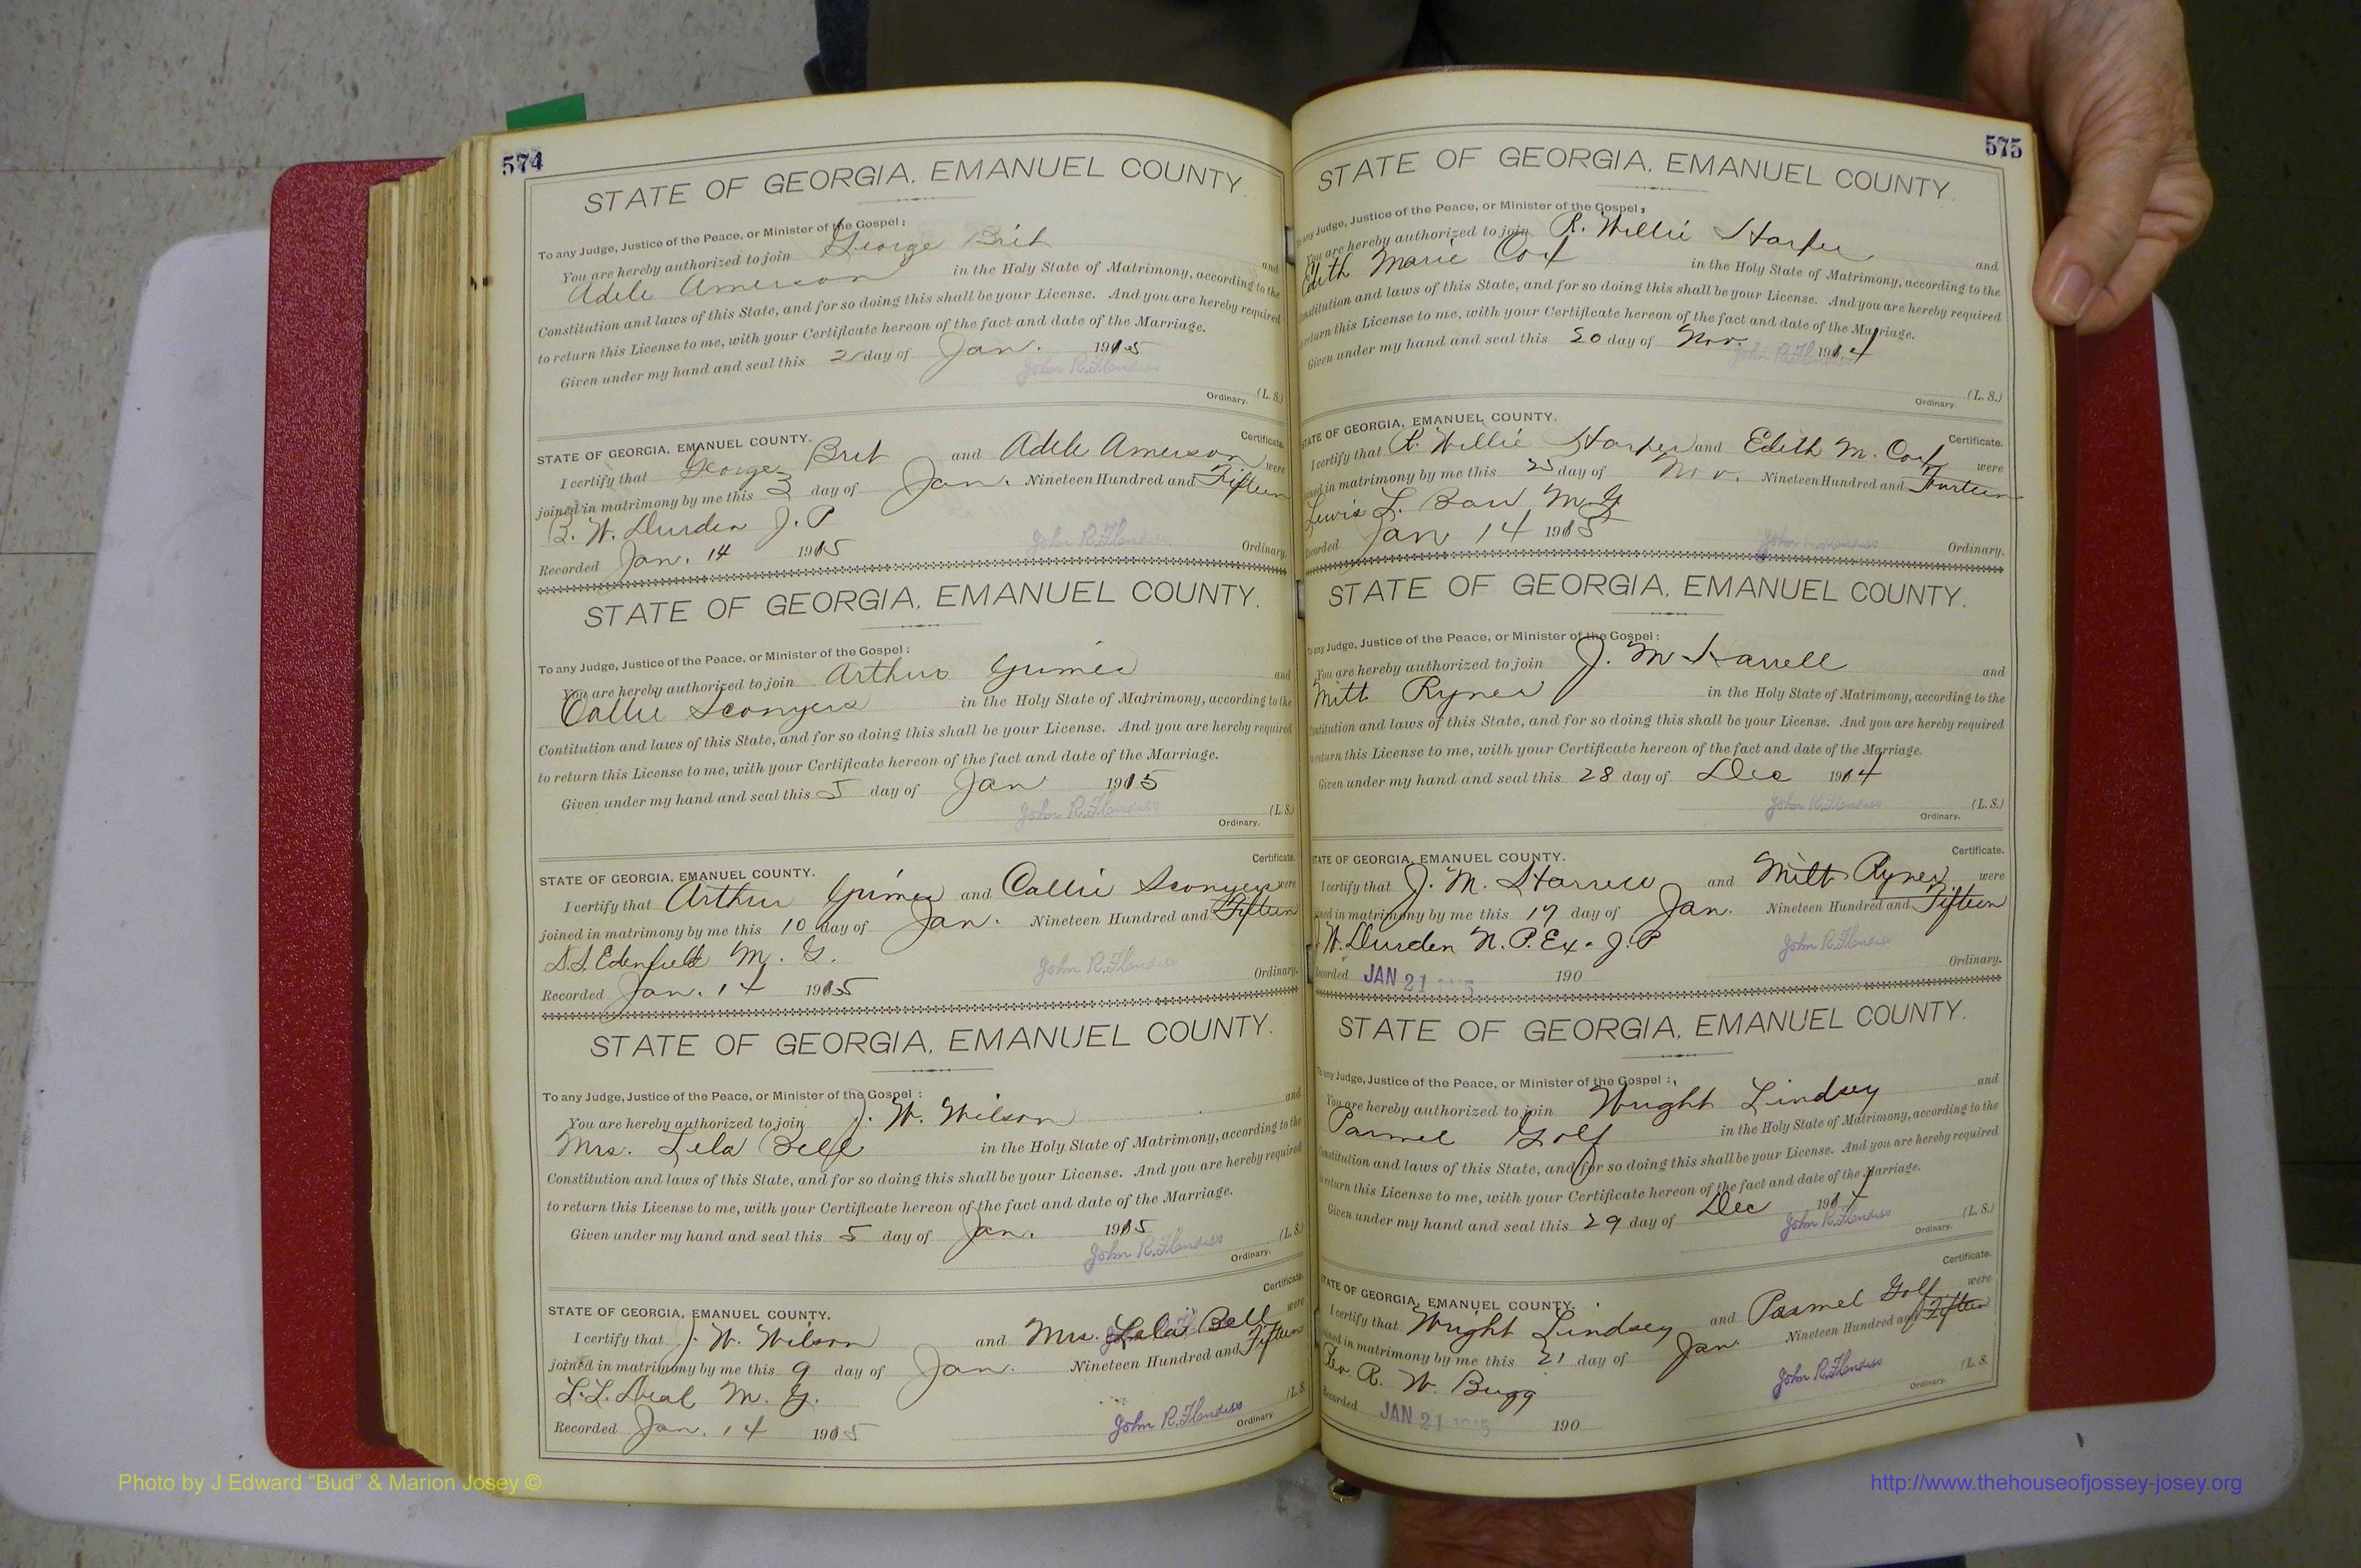 574
STATE OF GEORGIA, EMANUEL COUNTY.
To any Judge, Justice of the Peace, or Minister of the Gospel:
You are hereby authorized to join George Brit and
Adele Amerson in the Holy State of Matrimony, according to the
Constitution and laws of this State, and for so doing this shall be your License. And you are hereby required
to return this License to me, with your Certificate hereon of the fact and date of the Marriage.
Given under my hand and seal this 2 day of Jan. 1915
John R. (L. S.)
Ordinary.
Certificate.
STATE OF GEORGIA, EMANUEL COUNTY.
I certify that George Brit and Adele Amerson were
joined in matrimony by me this 3 day of Jan. Nineteen Hundred and Fifteen
B. W. Durden J. P
John R.
Recorded Jan. 14 1915 Ordinary.
STATE OF GEORGIA, EMANUEL COUNTY.
To any Judge, Justice of the Peace, or Minister of the Gospel:
You are hereby authorized to join Arthur Grimes and
Callie Sconyers in the Holy State of Matrimony, according to the
Contitution and laws of this State, and for so doing this shall be your License. And you are hereby required
to return this License to me, with your Certificate hereon of the fact and date of the Marriage.
Given under my hand and seal this 5 day of Jan 1915
John R. (L. S.)
Ordinary.
Certificate.
STATE OF GEORGIA, EMANUEL COUNTY.
I certify that Arthur Grimes and Callie Sconyers were
joined in matrimony by me this 10 day of Jan. Nineteen Hundred and Fifteen
Edenfield M. G.
John R.
Recorded Jan. 14 1915 Ordinary.
STATE OF GEORGIA, EMANUEL COUNTY.
To any Judge, Justice of the Peace, or Minister of the Gospel:
You are hereby authorized to join J. W. Wilson and
Mrs. Lela Bell in the Holy State of Matrimony, according to the
Constitution and laws of this State, and for so doing this shall be your License. And you are hereby required
to return this License to me, with your Certificate hereon of the fact and date of the Marriage.
Given under my hand and seal this 5 day of Jan. 1915
John R. (L. S.)
Ordinary.
Certificate.
STATE OF GEORGIA, EMANUEL COUNTY.
I certify that J. W. Wilson and Mrs. Lela Bell were
joined in matrimony by me this 9 day of Jan. Nineteen Hundred and Fifteen
L. L. Deal M. G.
John R. (L. S.
Recorded Jan. 14 1915 Ordinary.
575
STATE OF GEORGIA, EMANUEL COUNTY.
any Judge, Justice of the Peace, or Minister of the Gospel:
You are hereby authorized to join R. Willie Harper and
Edith Marie Cox in the Holy State of Matrimony, according to the
Constitution and laws of this State, and for so doing this shall be your License. And you are hereby required
return this License to me, with your Certificate hereon of the fact and date of the Marriage.
Given under my hand and seal this 20 day of Nov. 1914
John R. (L. S.)
Ordinary.
STATE OF GEORGIA, EMANUEL COUNTY. Certificate.
I certify that R. Willie Harper and Edith M. Cox were
joined in matrimony by me this 25 day of Nov. Nineteen Hundred and Fourteen
Lewis L. M. G.
Recorded Jan 14 1915 Ordinary.
STATE OF GEORGIA, EMANUEL COUNTY.
any Judge, Justice of the Peace, or Minister of the Gospel:
You are hereby authorized to join J. M Harrell and
Mitt Ryner in the Holy State of Matrimony, according to the
Constitution and laws of this State, and for so doing this shall be your License. And you are hereby required
return this License to me, with your Certificate hereon of the fact and date of the Marriage.
Given under my hand and seal this 28 day of Dec 1914
John R. (L. S.)
Ordinary.
STATE OF GEORGIA, EMANUEL COUNTY. Certificate.
I certify that J. M. Harrell and Mitt Ryner were
joined in matrimony by me this 17 day of Jan. Nineteen Hundred and Fifteen
W. Durden N. P. Ex. J. P
John R.
Recorded JAN 21 190 Ordinary.
STATE OF GEORGIA, EMANUEL COUNTY.
any Judge, Justice of the Peace, or Minister of the Gospel:
You are hereby authorized to join Wright Lindsey and
Parmel Golf in the Holy State of Matrimony, according to the
Constitution and laws of this State, and for so doing this shall be your License. And you are hereby required
return this License to me, with your Certificate hereon of the fact and date of the Marriage.
Given under my hand and seal this 29 day of Dec 1914
John R. (L. S.)
Ordinary.
Certificate.
STATE OF GEORGIA, EMANUEL COUNTY.
I certify that Wright Lindsey and Parmel Golf were
joined in matrimony by me this 21 day of Jan Nineteen Hundred and Fifteen
R. W. Bugg
John R. (L. S.
Recorded JAN 21 1915 190 Ordinary.
Photo by J Edward “Bud” & Marion Josey ©
http://www.thehouseofjossey-josey.org